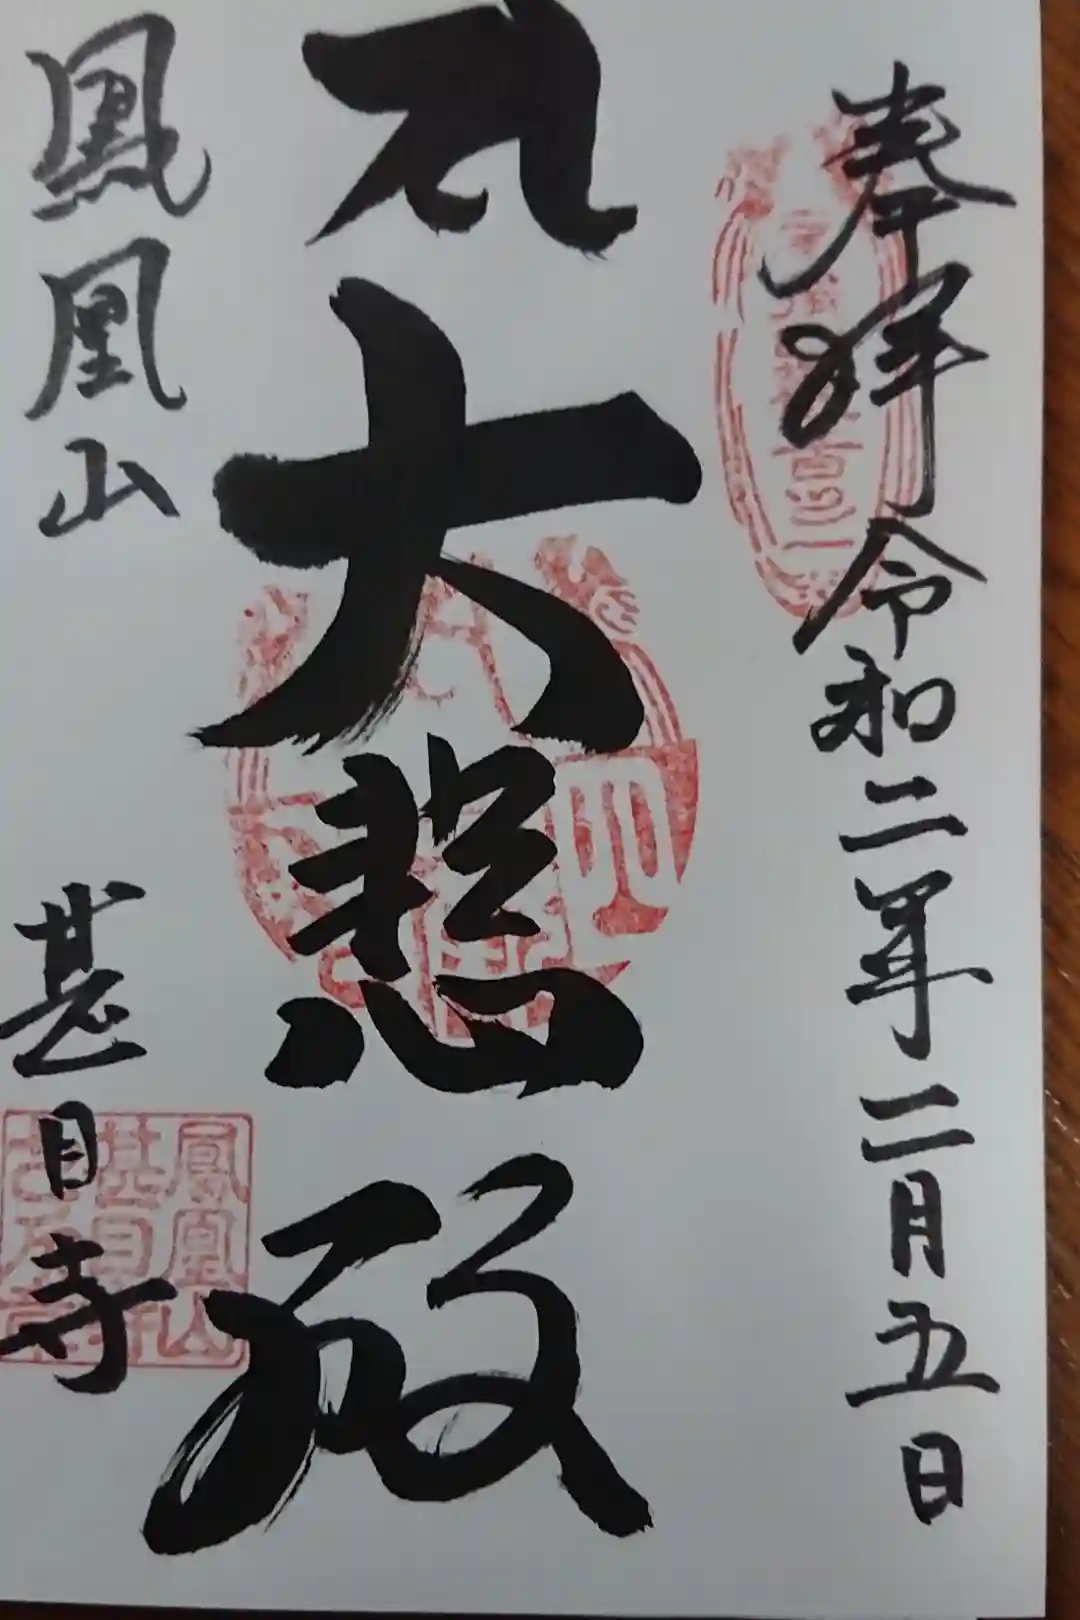 奉拝 令和二年二月五日
大悲殿
鳳凰山
甚目寺
鳳凰山
甚目寺